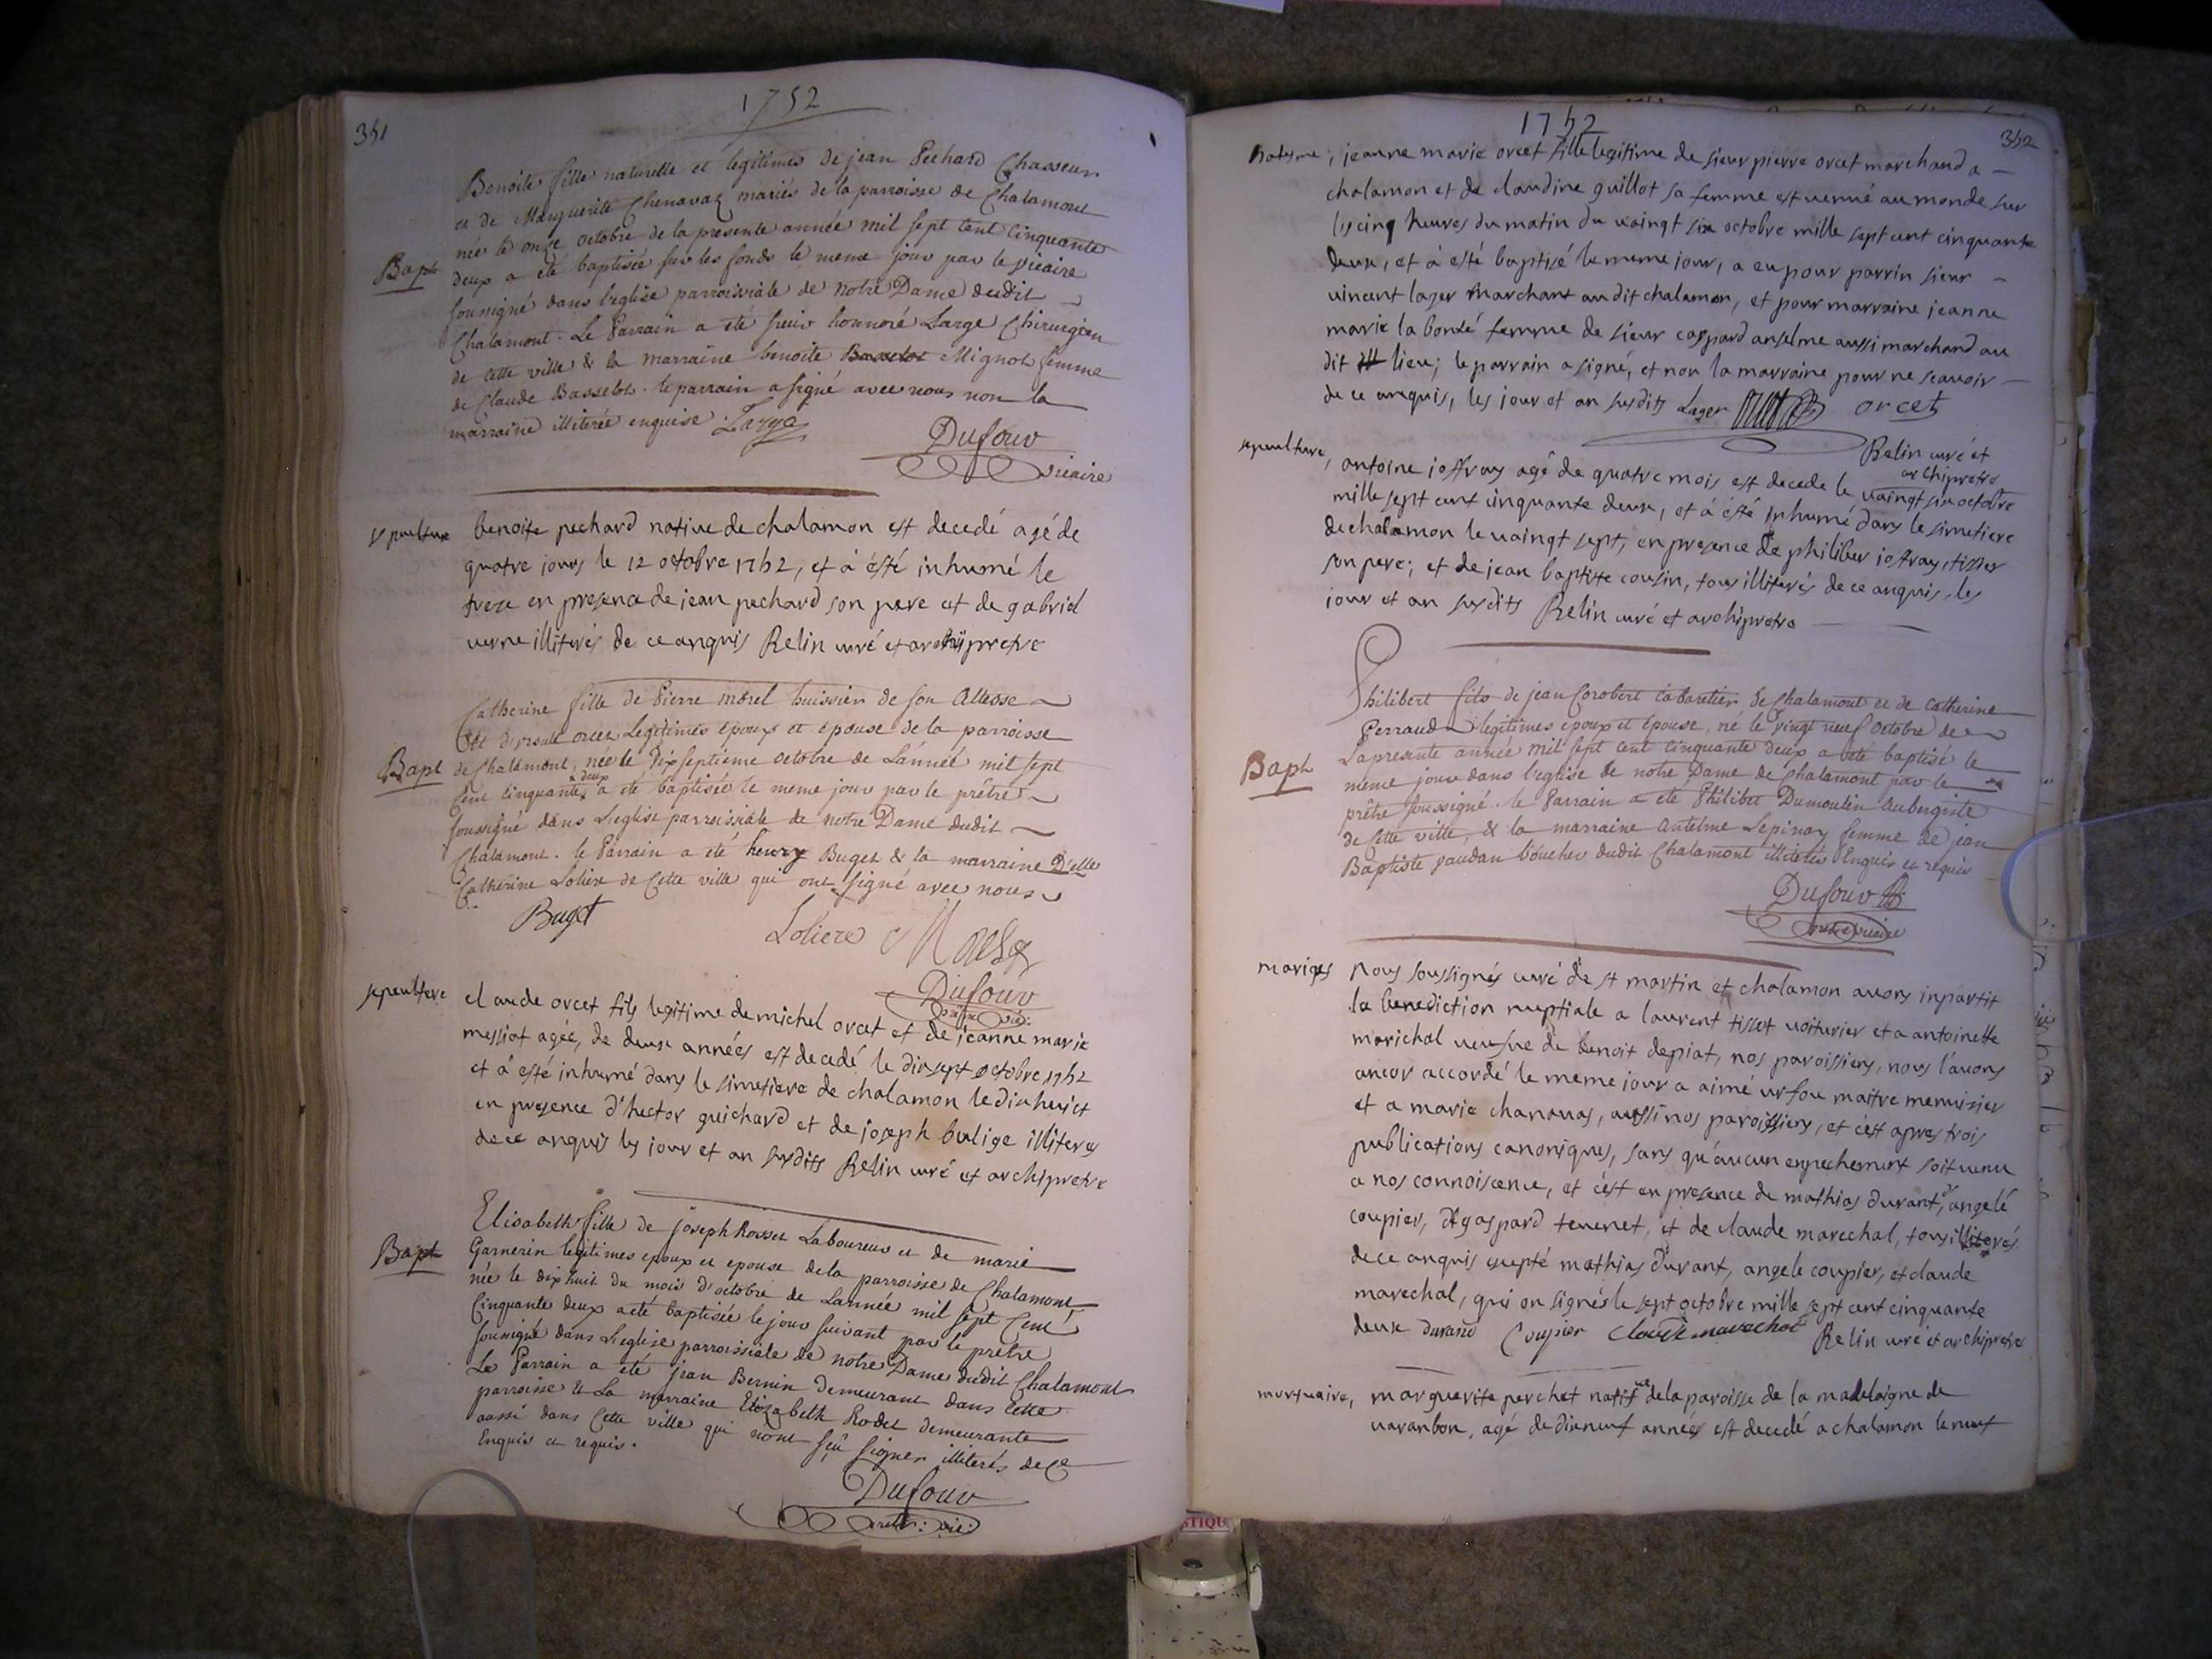 1752
351
Benoite fille naturelle et legitimes de jean Pechard Chasseur
et de Marguerite Chenavaz mariés de la parroisse de Chalamont
née le onze octobre de la presente année mil sept cent cinquante
Bapt
deux a été baptisée sur les fonds le meme jour par le vicaire
soussigné dans l'eglise parroissiale de notre Dame dudit
Chalamont. Le Parrain a été sieur honnoré Large Chirurgien
de cette ville & la marraine benoite Basselot Mignot femme
de Claude Basselot. le parrain a signé avec nous non la
marraine illiterée enquise. Large
Dufour
vicaire
sepulture benoite pechard native de chalamon est decedé agé de
quatre jours le 12 octobre 1752, et à ésté inhumé le
treze en presence de jean pechard son pere et de gabriel
verne illiterés de ce anquis Relin curé et archipretre
Catherine fille de Pierre morel huissier de son Altesse
et d'ursule orcet Legitimes epoux et epouse de la parroisse
Bapt de Chalamont, née le Dix septieme octobre de L'année mil sept
deux
cent cinquante a été baptisée le meme jour par le prêtre
soussigné dans L'eglise parroissiale de notre Dame dudit
Chalamont. le Parrain a été henry Buget & la marraine D'elle
Catherine Loliere de Cette ville qui ont signé avec nous
Buget Loliere Morel
Dufour
pretre vic:
sepulture claude orcet fils legitime de michel orcet et de jeanne marie
messiat agée, de deux années est decedé le dix sept octobre 1752
et à esté inhumé dans le simetiere de chalamon le dix huict
en presence d'hector guichard et de joseph bulige illiteres
de ce anquis les jour et an susdits Relin curé et archipretre
Elisabeth fille de joseph Rosset Laboureur et de marie
Bapt Garnerin legitimes epoux et epouse de la parroisse de Chalamont
née le dix huit du mois d'octobre de Lannée mil sept Cent
Cinquante deux a été baptisée le jour suivant par le prêtre
soussigné dans L'eglise parroissiale de notre Dame dudit Chalamont
Le Parrain a été jean Bernin demeurant dans Cette
parroisse & La marraine Elizabeth Rodet demeurante
aussi dans Cette ville qui n'ont sçu signer illiterés de Ce
Enquis et requis.
Dufour
pretr: vic:
1752
352
batesme, jeanne marie orcet fille legitime de sieur pierre orcet marchand a
chalamon et de claudine guillot sa femme est venue au monde sur
les cinq heures du matin du vaingt six octobre mille sept cent cinquante
deux, et à esté baptisé le meme jour, a eu pour parrin sieur
vincent lager marchant au dit chalamon, et pour marraine jeanne
marie la bonté femme de sieur caspard anselme aussi marchand au
dit lieu; le parrain a signé, et non la marraine pour ne scavoir
de ce anquis, les jour et an susdits Lager orcet
Relin curé et
archipretre
sepulture, antoine joffray agé de quatre mois est decede le vaingt six octobre
mille sept cent cinquante deux, et à ésté inhumé dans le simetiere
de chalamon le vaingt sept, en presence de philiber joffray tissier
son pere; et de jean baptiste cousin, tous illiterés de ce anquis, les
jour et an susdits Relin curé et archipretre
Philibert fils de jean Corobert Cabaretier de Chalamont et de Catherine
Perraud legitimes epoux et epouse, né le vingt neuf octobre de
La presente année mil sept cent cinquante deux a été baptisé le
Bapt meme jour dans l'eglise de notre Dame de Chalamont par le
prêtre soussigné. le Parrain a été Philibert Dumoulin Aubergiste
de Cette ville, & la marraine Antelme Lepinay femme de jean
Baptiste paudan boucher dudit Chalamont illiterés Enquis et requis
Dufour
pretre vicaire
mariges nous soussignés curé de st martin et chalamon avons inpartit
la benediction nuptiale a laurent tissot voiturier et a antoinette
marichal veufve de benoit depiat, nos paroissiens, nous l'avons
ancor accordé le meme jour a aimé urfou maitre menuisier
et a marie chanavas, aussi nos paroissiens, et c'est apres trois
publications canoniques, sans qu'aucun enpechement soit venu
a nos connoisance, et c'est en presence de mathias durant, angelé
coupier, de gaspard tevenet, et de claude marechal, tous illiterés
de ce anquis excepté mathias durant, angele coupier, et claude
marechal, qui on signés le sept octobre mille sept cent cinquante
deux durand Coupier Claude marechal Relin curé et archipretre
mortuaire, marguerite perchet native de la paroisse de la madelaigne de
varanbon, agé de dixneuf années est decedé a chalamon le neuf